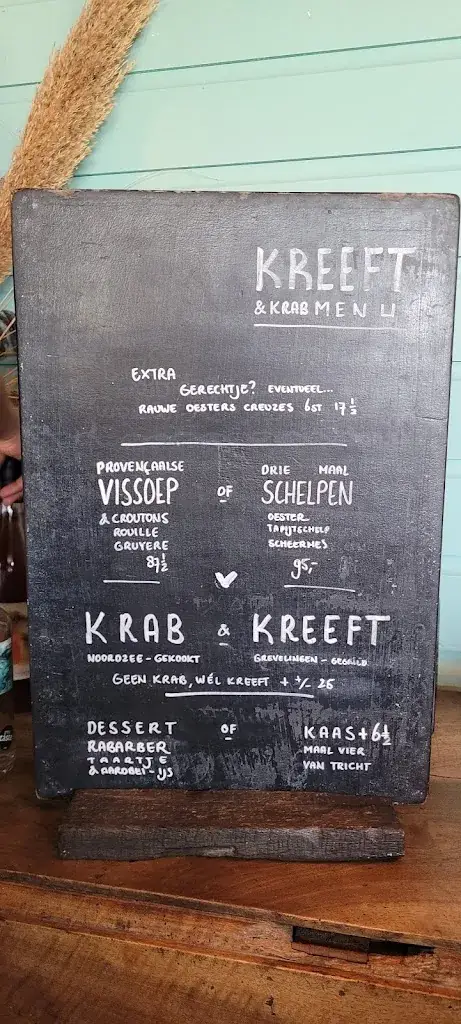 KREEFT
& KRAB MENU
EXTRA
GERECHTJE? EVENTUEEL...
RAUWE OESTERS CREUZES 6ST 17½
PROVENÇAALSE
VISSOEP
& CROUTONS
ROUILLE
GRUYERE
87½
OF
DRIE MAAL
SCHELPEN
OESTER
TAPIJTSCHELP
SCHEERMES
95,-
KRAB & KREEFT
NOORDZEE - GEKOOKT
GREVELINGEN - GEGRILD
GEEN KRAB, WÉL KREEFT + +/- 25
DESSERT
RABARBER
TAARTJE
& AARDBEI-IJS
OF
KAAS+6½
MAAL VIER
VAN TRICHT